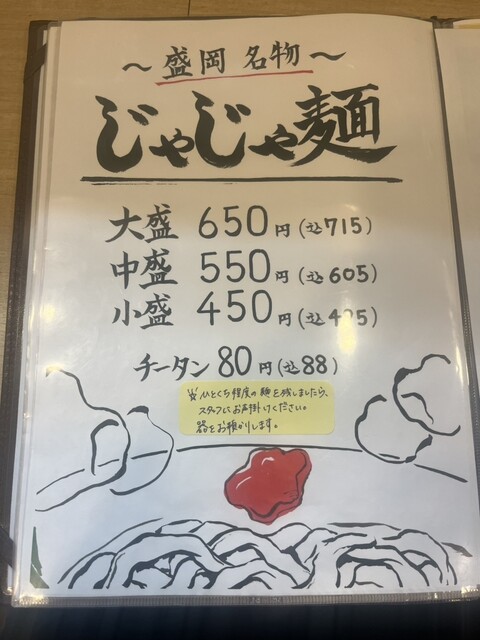 〜盛岡 名物〜
じゃじゃ麺
大盛 650円(込715)
中盛 550円(込605)
小盛 450円(込495)
チータン 80円(込88)
※ひとくち程度の麺を残しましたら、
スタッフにお声掛けください。
器をお預かりします。